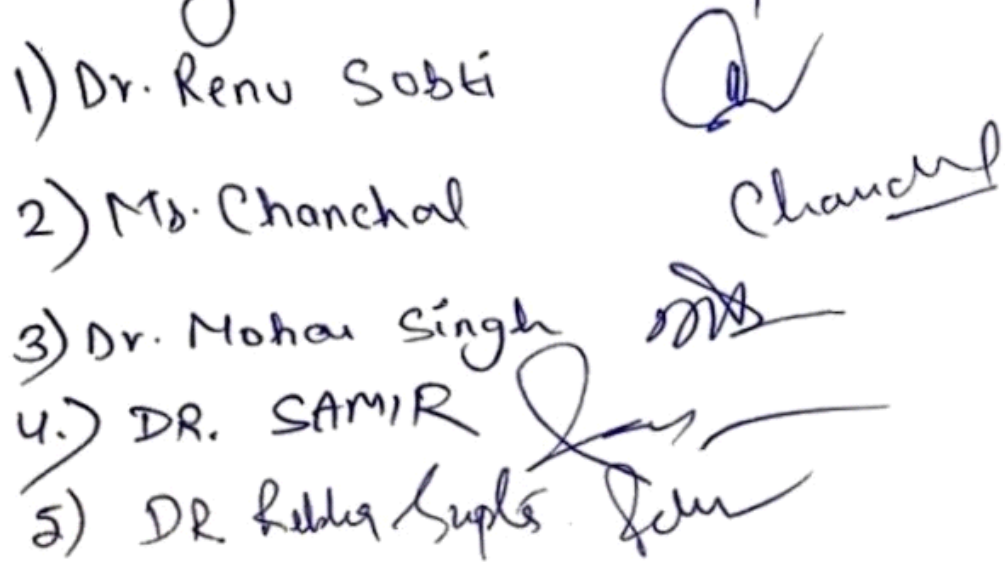 1) Dr. Renu Sobti
2) Ms. Chanchal Chanchal
3) Dr. Mohan Singh
4.) DR. SAMIR
5) DR Gupta